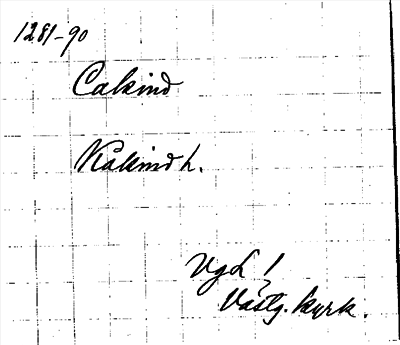 1281-90
Cakind
Kakind h.
VgL !
Västg. kyrk.